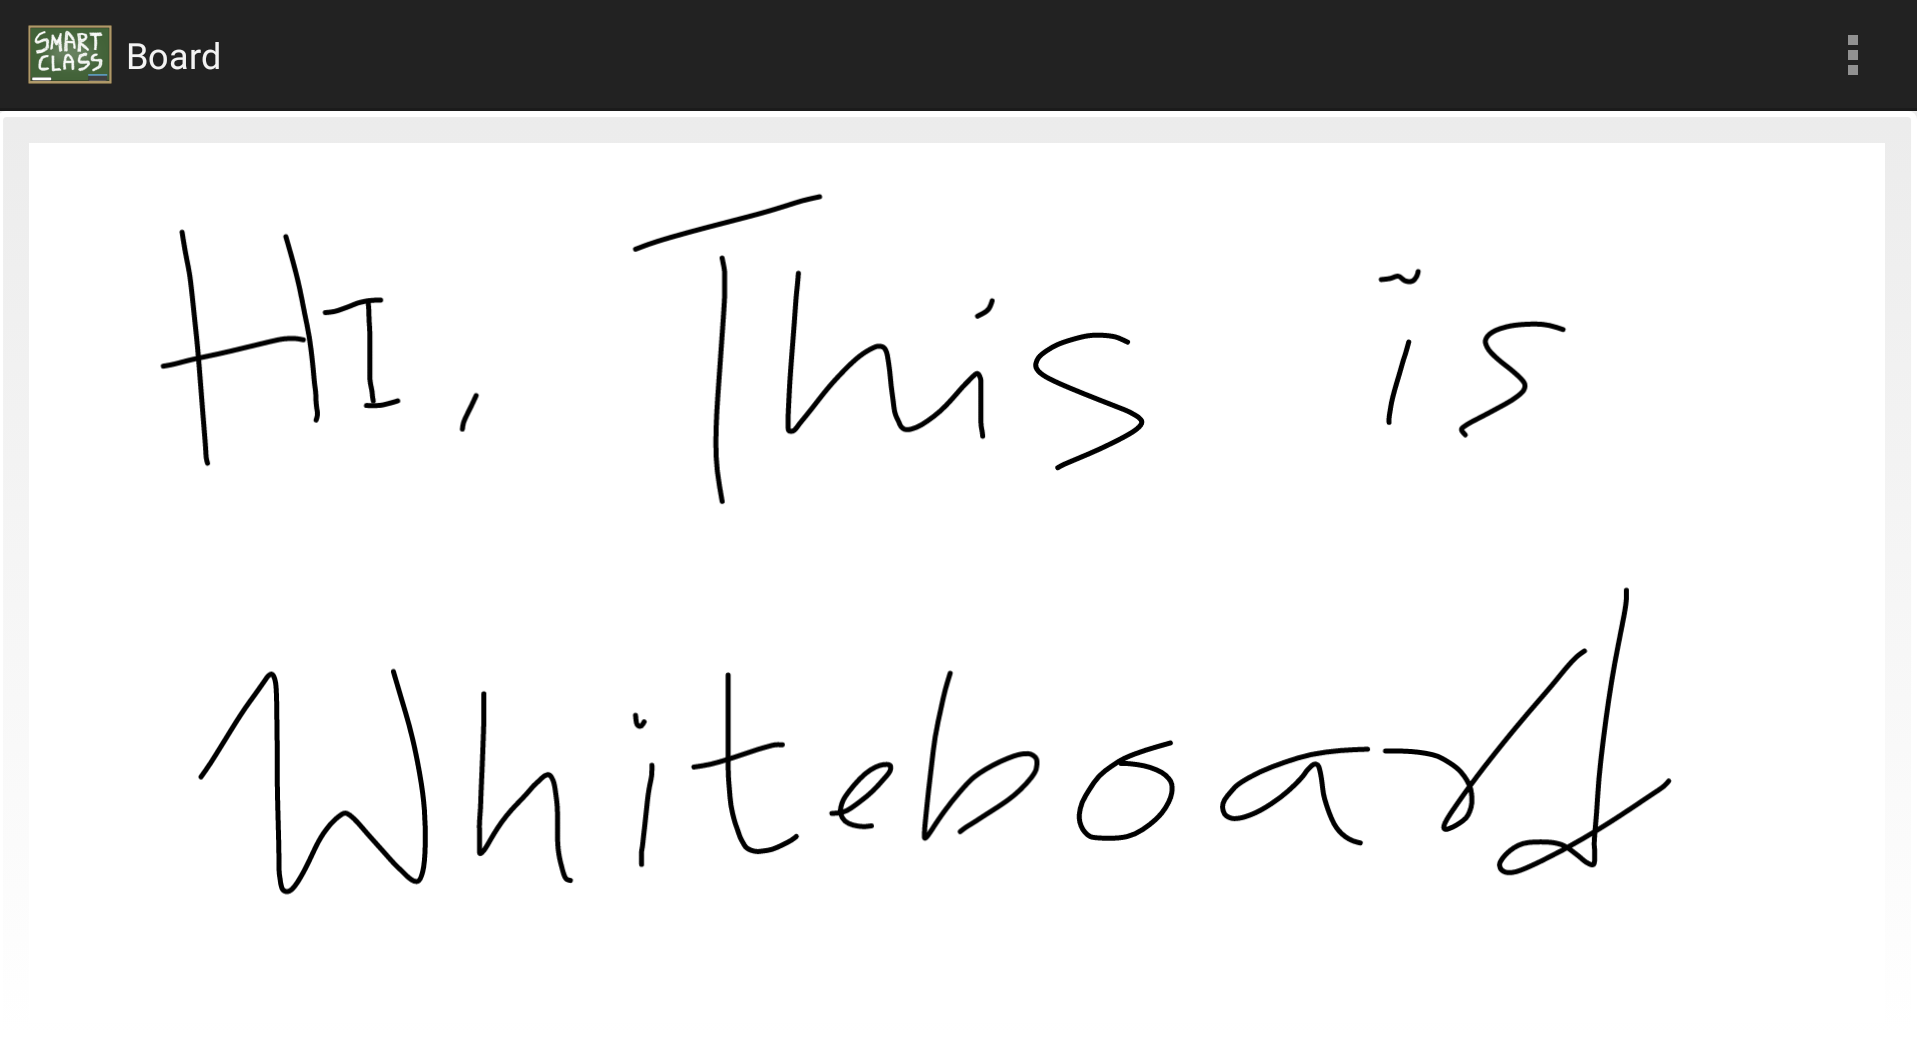 SMART
CLASS
Board
HI, This is
Whiteboard